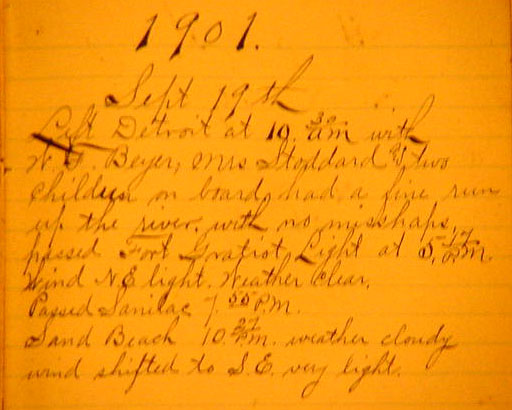 1901.
Sept 19th
Left Detroit at 10. 30 am with
W. G. Beyer, Mrs Stoddard & two
children on board, had a fine run
up the river, with no misshaps,
passed Fort Gratiot Light at 5, 17 PM.
Wind NE light. Weather Clear.
Passed Sanilac 7. 55 PM.
Sand Beach 10. PM. weather cloudy
wind shifted to S.E. very light.